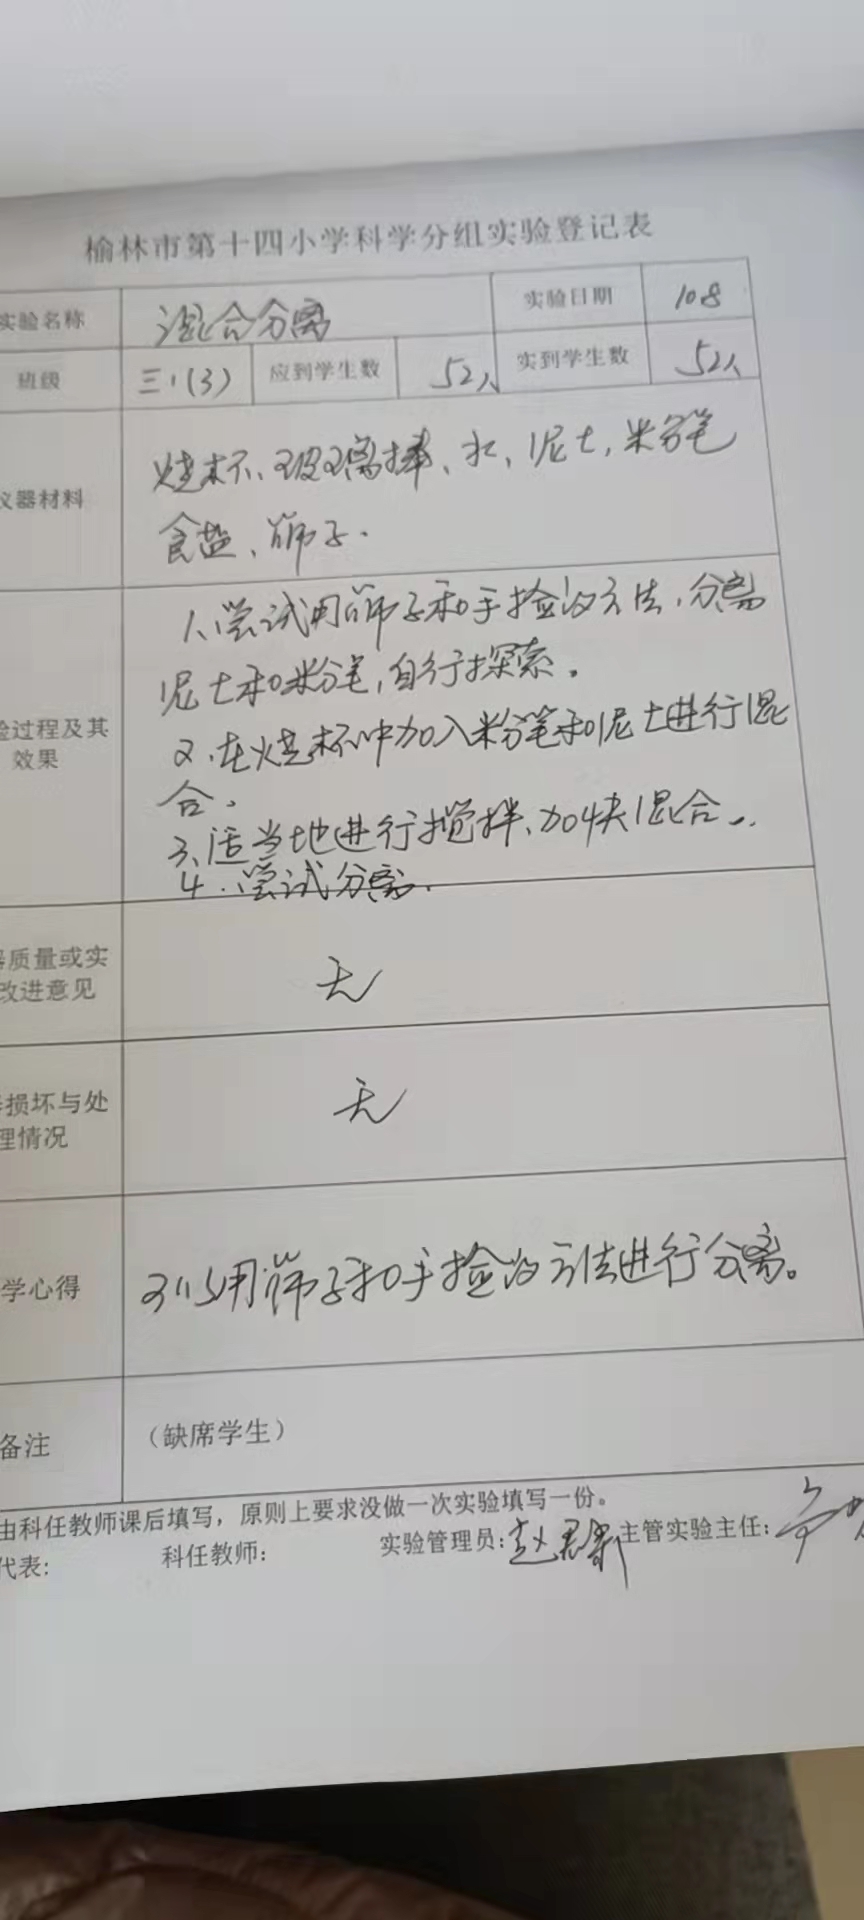 榆林市第十四小学科学分组实验登记表
实验名称 混合分离 实验日期 10.8
班级 三.(3) 应到学生数 52人 实到学生数 52人
仪器材料 烧杯、玻璃棒、水、泥土,粉笔
食盐、筛子.
1、尝试用筛子和手捡的方法,分离
泥土和粉笔,自行探索。
验过程及其
效果
2.在烧杯中加入粉笔和泥土进行混
合。
3、适当地进行搅拌、加快混合。
4.尝试分离.
质量或实
改进意见
无
损坏与处
理情况
无
学心得 可以用筛子和手捡的方法进行分离。
备注 (缺席学生)
由科任教师课后填写,原则上要求没做一次实验填写一份。
代表: 科任教师: 实验管理员: 主管实验主任: